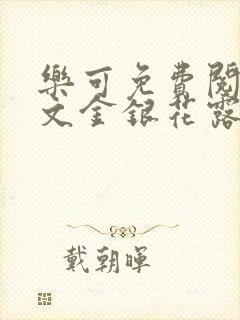 樂可免費閱
文金銀花露
戴朝暉